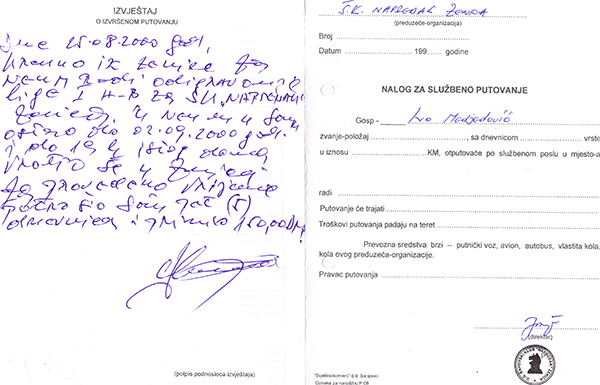 IZVJEŠTAJ
O IZVRŠENOM PUTOVANJU
Dne 25.08.2000 god,
krenuo iz Zenice za
Neum
lige I H-B za ŠK "NAPREDAK"
Zenica. U Neumu sam
ostao do 02.09.2000 god.
i do 19 h istog dana
vratio se u Zenicu
Za provedeno vrijeme
sam pet (5)
dnevnica i primio 150,00DM.
(potpis podnosioca izvještaja)
Š.K. NAPREDAK ZENICA
(preduzeće-organizacija)
Broj
Datum 199 godine
NALOG ZA SLUŽBENO PUTOVANJE
Gosp - Ivo
zvanje-položaj , sa dnevnicom vrste
u iznosu KM, otputovaće po službenom poslu u mjesto-a
radi
Putovanje će trajati
Troškovi putovanja padaju na teret
Prevozna sredstva: brzi -- putnički voz, avion, autobus, vlastita kola,
kola ovog preduzeća-organizacije.
Pravac putovanja
(direktor)
Oznaka za narudžbu P-08